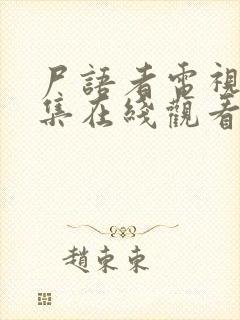 尸語者電視
集在綫觀看
趙東東